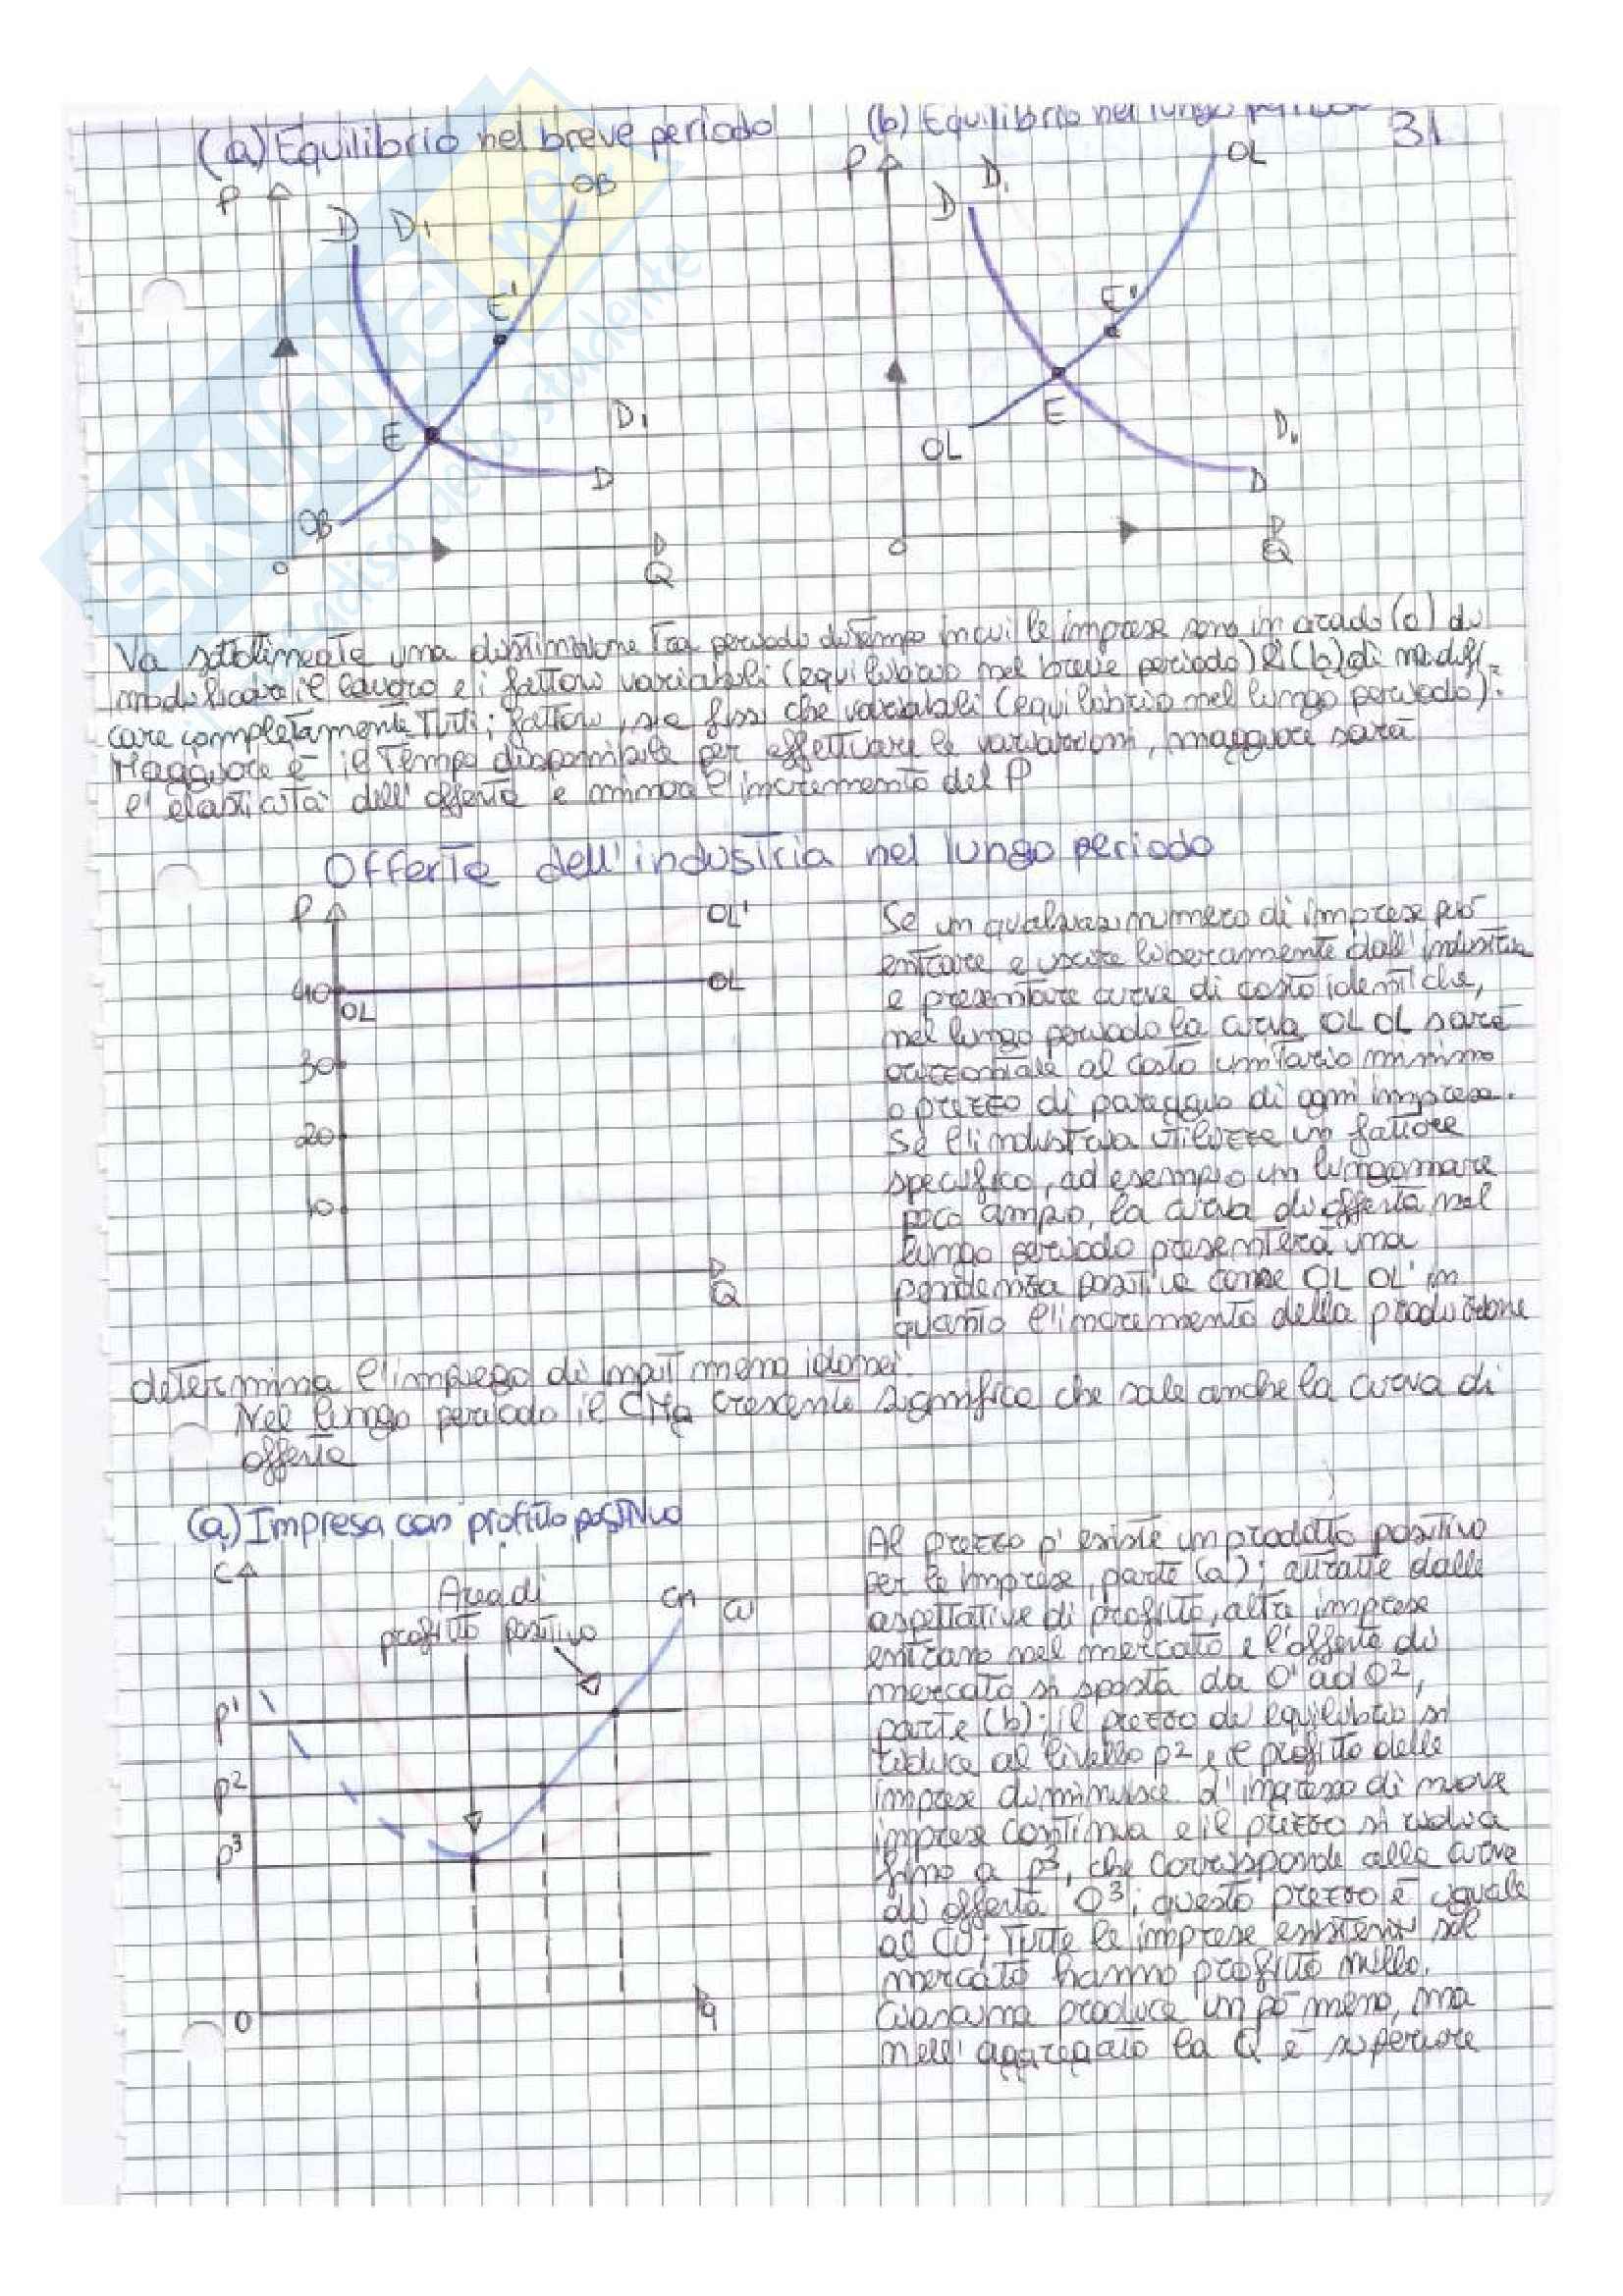 (a) Equilibrio nel breve periodo
(b) Equilibrio nel lungo periodo
31
P
D
D1
OB
E'
E
D1
D
OB
O
Q
P
D
D1
OL
E"
E
OL
D1
D
O
Q
Va sottolineata una distinzione tra periodo di tempo in cui le imprese sono in grado (a) di
modificare il lavoro e i fattori variabili (equilibrio nel breve periodo) e (b) di modifi-
care completamente tutti i fattori, sia fissi che variabili (equilibrio nel lungo periodo).
Maggiore è il tempo disponibile per effettuare le variazioni, maggiore sarà
l'elasticità dell'offerta e minore l'incremento del P
Offerta dell'industria nel lungo periodo
P
OL'
40
OL
OL
30
20
10
Q
Se un qualsiasi numero di imprese può
entrare e uscire liberamente dall'industria
e presentare curve di costo identiche,
nel lungo periodo la curva OL OL sarà
orizzontale al costo unitario minimo
o prezzo di pareggio di ogni impresa.
Se l'industria utilizza un fattore
specifico, ad esempio un lungomare
poco ampio, la curva di offerta nel
lungo periodo presenterà una
pendenza positiva come OL OL' in
quanto l'incremento della produzione
determina l'impiego di input meno idonei.
Nel lungo periodo il CMa crescente significa che sale anche la curva di
offerta
(a) Impresa con profitto positivo
C
Area di
profitto positivo
CM
CU
P1
P2
P3
O
q
Al prezzo p' esiste un prodotto positivo
per le imprese, parte (a); attratte dalle
aspettative di profitto, altre imprese
entrano nel mercato e l'offerta di
mercato si sposta da O' ad O2,
parte (b); il prezzo di equilibrio si
riduce al livello p2 e il profitto delle
imprese diminuisce. L'ingresso di nuove
imprese continua e il prezzo si riduce
fino a p3, che corrisponde alla curva
di offerta O3; questo prezzo è uguale
al CU; tutte le imprese esistenti sul
mercato hanno profitto nullo.
Ciascuna produce un pò meno, ma
nell'aggregato la Q è superiore
SKUOLA.net
il paradiso dello studente